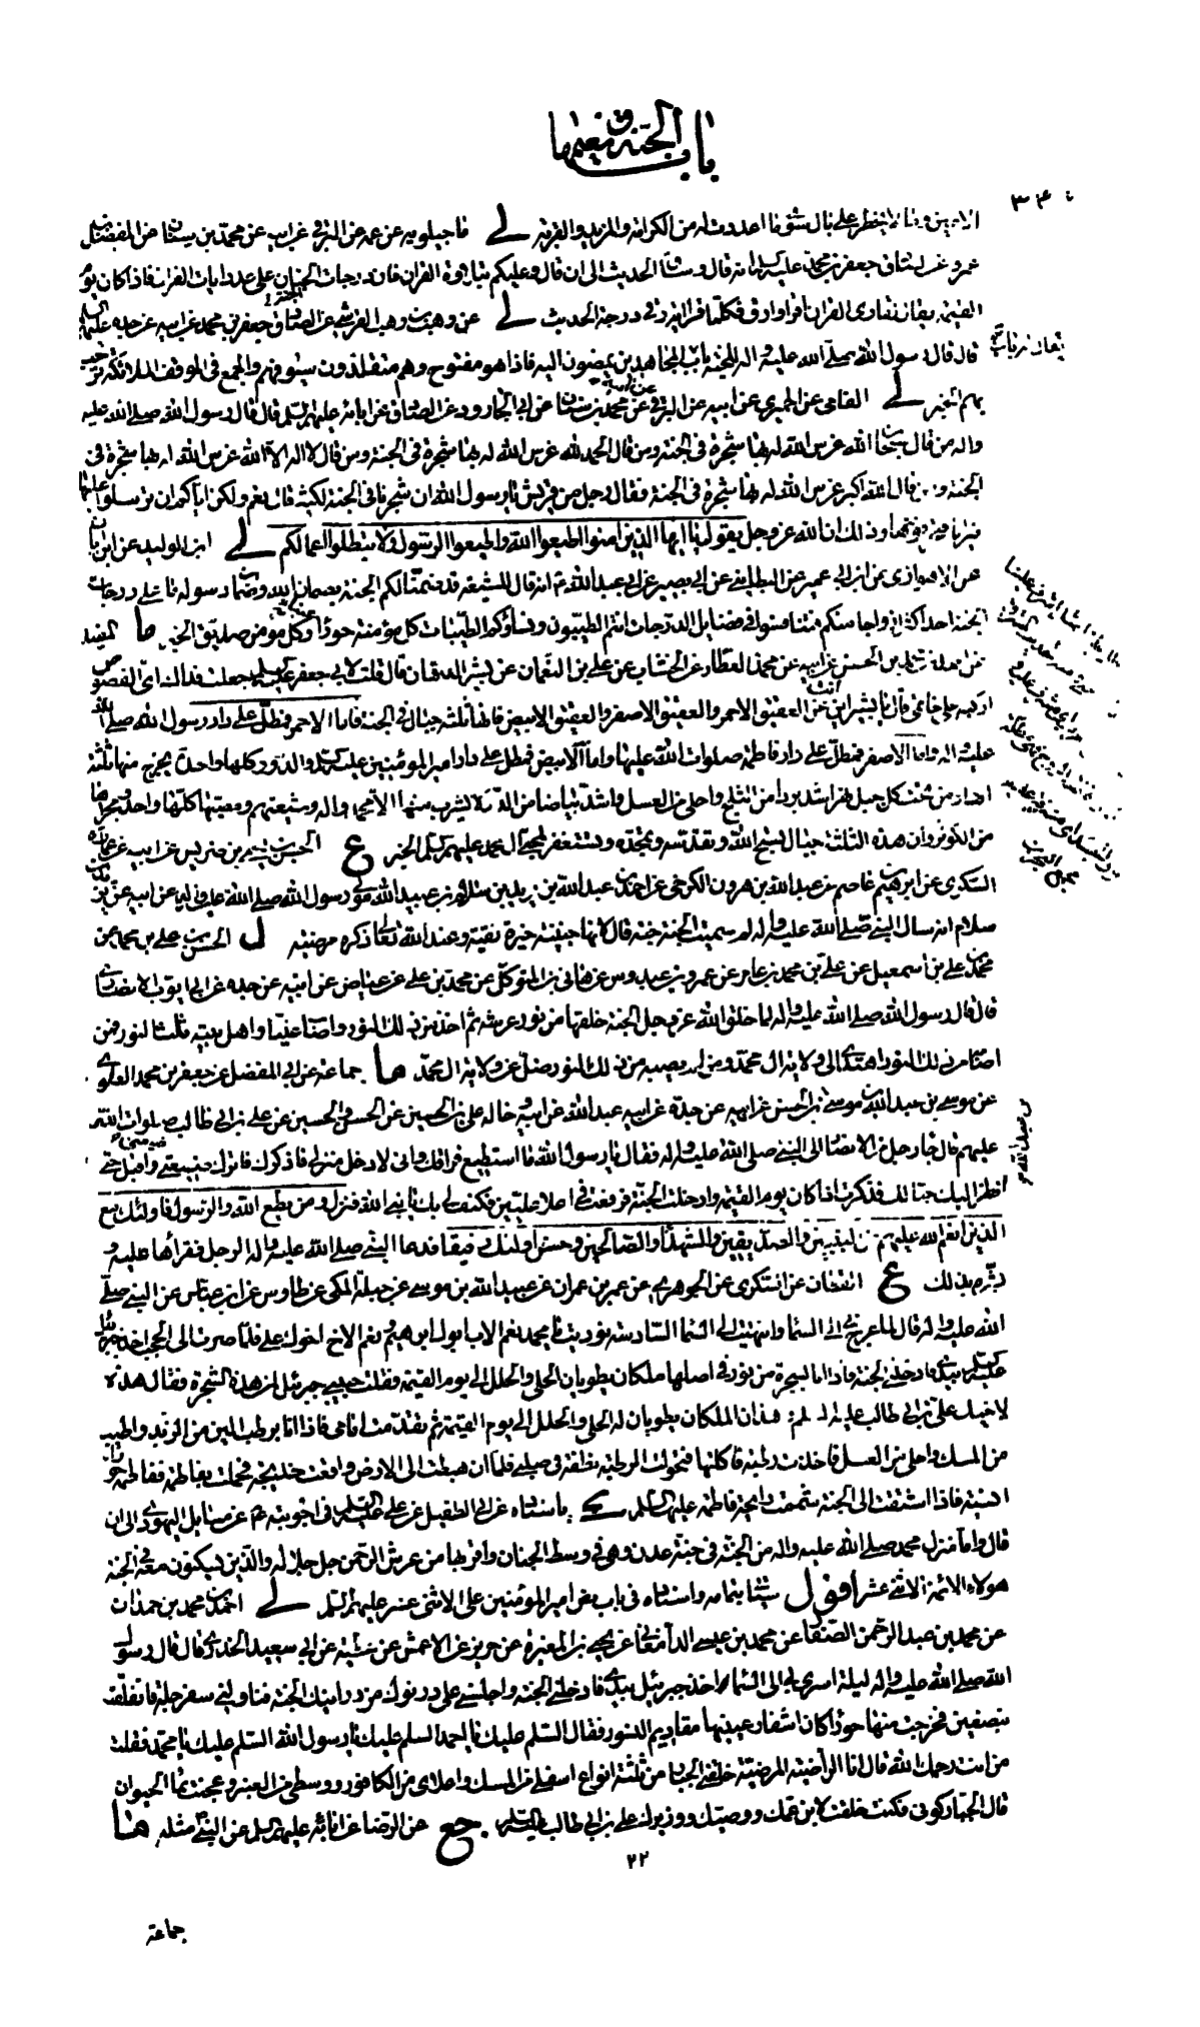 باب الجنة و نعيمها
٣٤٠
الآدميين وما لا يخطر على بال شوقا ما اعددت له من الكرامة والمزيد والقربة لى ما جيلويه عن عمه عن البرقى عن ابيه عن محمد بن سنان عن المفضل بن
عمرو عن الصادق جعفر بن محمد عليه السلام انه قال وساق الحديث الى ان قال وعليكم بتلاوة القرآن فان درجات الجنان على عدد آيات القرآن فاذا كان يوم
القيمة يقال لقارى القرآن اقرأ وارق فكلما قرأ آية رقى درجة الحديث لى عن وهب بن وهب القرشى عن الصادق جعفر بن محمد عن ابيه عن جده عليهم السلم
قال قال رسول الله صلى الله عليه واله للجنة باب يقال له باب المجاهدين يمضون اليه فاذا هو مفتوح وهم متقلدون سيوفهم والجمع فى الموقف والملائكة ترحب
بهم الخبر لى القامى عن الحميرى عن ابيه عن البرقى عن محمد بن سنان عن ابى الجارود عن الصادق عن آبائه عليهم السلم قال قال رسول الله صلى الله عليه
واله من قال سبحان الله غرس الله له بها شجرة فى الجنة ومن قال الحمد لله غرس الله له بها شجرة فى الجنة ومن قال لا اله الا الله غرس الله له بها شجرة فى
الجنة ومن قال الله اكبر غرس الله له بها شجرة فى الجنة فقال رجل من قريش يا رسول الله ان شجرنا فى الجنة لكثير قال نعم ولكن اياكم ان ترسلوا عليها
نيرانا فتحرقوها وذلك ان الله عز وجل يقول يا ايها الذين آمنوا اطيعوا الله واطيعوا الرسول ولا تبطلوا اعمالكم لى ابن الوليد عن ابن ابان
عن الاهوازى عن ابن ابى عمير عن البطاينى عن ابى بصير عن ابى عبد الله ع انه قال للشيعة قد ضمنا لكم الجنة بضمان الله وضمان رسوله ما على درجات
الجنة احد اكثر ازواجا منكم فتنافسوا فى فضايل الدرجات انتم الطيبون ونساؤكم الطيبات كل مؤمنة حوراء وكل مؤمن صديق الخبر ما المفيد
عن عن ابيه عن محمد العطار عن الخشاب عن على بن النعمان عن بشير الدهقان قال قلت لابى جعفر عليه السلم جعلت فداك اى الفصوص
اركبه على خاتمى قال يا بشير اين انت عن العقيق الاحمر والعقيق الاصفر والعقيق الابيض فانها ثلثة جبال فى الجنة فاما الاحمر فمطل على دار رسول الله صلى الله
عليه واله واما الاصفر فمطل على دار فاطمة صلوات الله عليها واما الابيض فمطل على دار امير المؤمنين عليه السلم والدور كلها واحدة يخرج منها ثلثة
انهار من تحت كل جبل نهر اشد بردا من الثلج واحلى من العسل واشد بياضا من الدر لا يشرب منها الا محمد واله وشيعتهم ومصبها كلها واحد ومجراها
من الكوثر وان هذه الثلثة جبال تسبح الله وتقدسه وتمجده وتستغفر لمحبى آل محمد عليهم السلم الخبر ع الحسن بن يحيى بن ضريس عن ابيه عن عمارة
السكرى عن ابرهيم بن عاصم عن عبد الله بن هرون الكرخى عن احمد بن عبد الله بن يزيد بن سلام بن عبيد الله مولى رسول الله صلى الله عليه واله عن ابيه عن يزيد بن
سلام انه سال النبى صلى الله عليه واله لم سميت الجنة جنة قال لانها جنينة خيرة نقية وعند الله تعالى ذكره مرضية ل الحسن بن على بن محمد عن
محمد بن على بن اسمعيل عن على بن محمد بن عامر عن عمرو بن عبدوس عن هانى بن المتوكل عن محمد بن على بن عياض عن ابيه عن جده عن ابى ايوب الانصارى
قال قال رسول الله صلى الله عليه واله لما خلق الله عز وجل الجنة خلقها من نور عرشه ثم اخذ من ذلك النور واصاب عليا واهل بيته ثلث النور فمن
اصابه من ذلك النور اهتدى الى ولاية ال محمد ومن لم يصبه من ذلك النور ضل عن ولاية ال محمد ما جماعة عن ابى المفضل عن جعفر بن محمد العلوى
عن موسى بن عبد الله بن موسى بن الحسن عن ابيه عن جده عن ابيه عبد الله عن ابيه وخاله على بن الحسين عن الحسن والحسين عن على بن ابى طالب صلوات الله
عليهم قال جاء رجل من الانصار الى النبى صلى الله عليه واله فقال يا رسول الله ما استطيع فراقك وانى لادخل منزلى فاذكرك فاترك ضيعتى واقبل حتى
انظر اليك حبا لك فذكرت اذا كان يوم القيمة وادخلت الجنة فرفعت فى اعلا عليين فكيف لى بك يا نبى الله فنزل ومن يطع الله والرسول فاولئك مع
الذين انعم الله عليهم من النبيين والصديقين والشهداء والصالحين وحسن اولئك رفيقا فدعا النبى صلى الله عليه واله الرجل فقرأها عليه و
بشره بذلك ع القطان عن السكرى عن الجوهرى عن عمر بن عمران عن عبيد الله بن موسى عن جبلة المكى عن طاوس عن ابن عباس عن النبى صلى
الله عليه واله قال لما عرج بى الى السماء وانتهيت الى السماء السادسة نوديت يا محمد نعم الاب ابوك ابرهيم ونعم الاخ اخوك على فلما صرت الى الحجب اخذ جبرئيل
عليه السلم بيدى فادخلنى الجنة فاذا انا بشجرة من نور فى اصلها ملكان يطويان الحلى والحلل الى يوم القيمة فقلت حبيبى جبرئيل لمن هذه الشجرة فقال هذه
لاخيك على بن ابى طالب عليه السلم وهذان الملكان يطويان له الحلى والحلل الى يوم القيمة ثم تقدمت امامى فاذا انا برطب الين من الزبد واطيب
من المسك واحلى من العسل فاخذت رطبة فاكلتها فتحولت الرطبة نطفة فى صلبى فلما ان هبطت الى الارض واقعت خديجة فحملت بفاطمة ففاطمة حوراء
انسية فاذا اشتقت الى الجنة شممت رايحة فاطمة عليها السلم باسناده عن ابى الطفيل عن على عليه السلم فى اجوبته عن مسايل اليهودى الى ان
قال واما منزل محمد صلى الله عليه واله من الجنة فى جنة عدن وهى فى وسط الجنان واقربها من عرش الرحمن جل جلاله والذين يسكنون معه فى الجنة
هولاء الائمة الاثنى عشر اقول سياتى بتمامه واسناده فى باب نص امير المؤمنين على الاثنى عشر عليهم السلم لى احمد بن محمد بن حمدان
عن محمد بن عبد الرحمن الصفار عن محمد بن عيسى الدامغانى عن يحيى بن المغيرة عن جرير عن الاعمش عن عطية عن ابى سعيد الخدرى قال قال رسول
الله صلى الله عليه واله ليلة اسرى بى الى السماء اخذ جبرئيل بيدى فادخلنى الجنة واجلسنى على درنوك من درانيك الجنة فناولنى سفرجلة فانفلقت
بنصفين فخرجت منها حوراء كان اشفار عينيها مقاديم النسور فقال السلم عليك يا احمد السلم عليك يا رسول الله السلم عليك يا محمد فقلت
من انت رحمك الله قال انا الراضية المرضية خلقنى الجبار من ثلثة انواع اسفلى من المسك واعلاى من الكافور ووسطى من العنبر وعجنت بماء الحيوان
قال الجبار كونى فكنت خلقت لابن عمك ووصيك ووزيرك على بن ابى طالب عليه السلم جع عن الرضا عن آبائه عليهم السلم عن النبى مثله ما
٢٢
جماعة